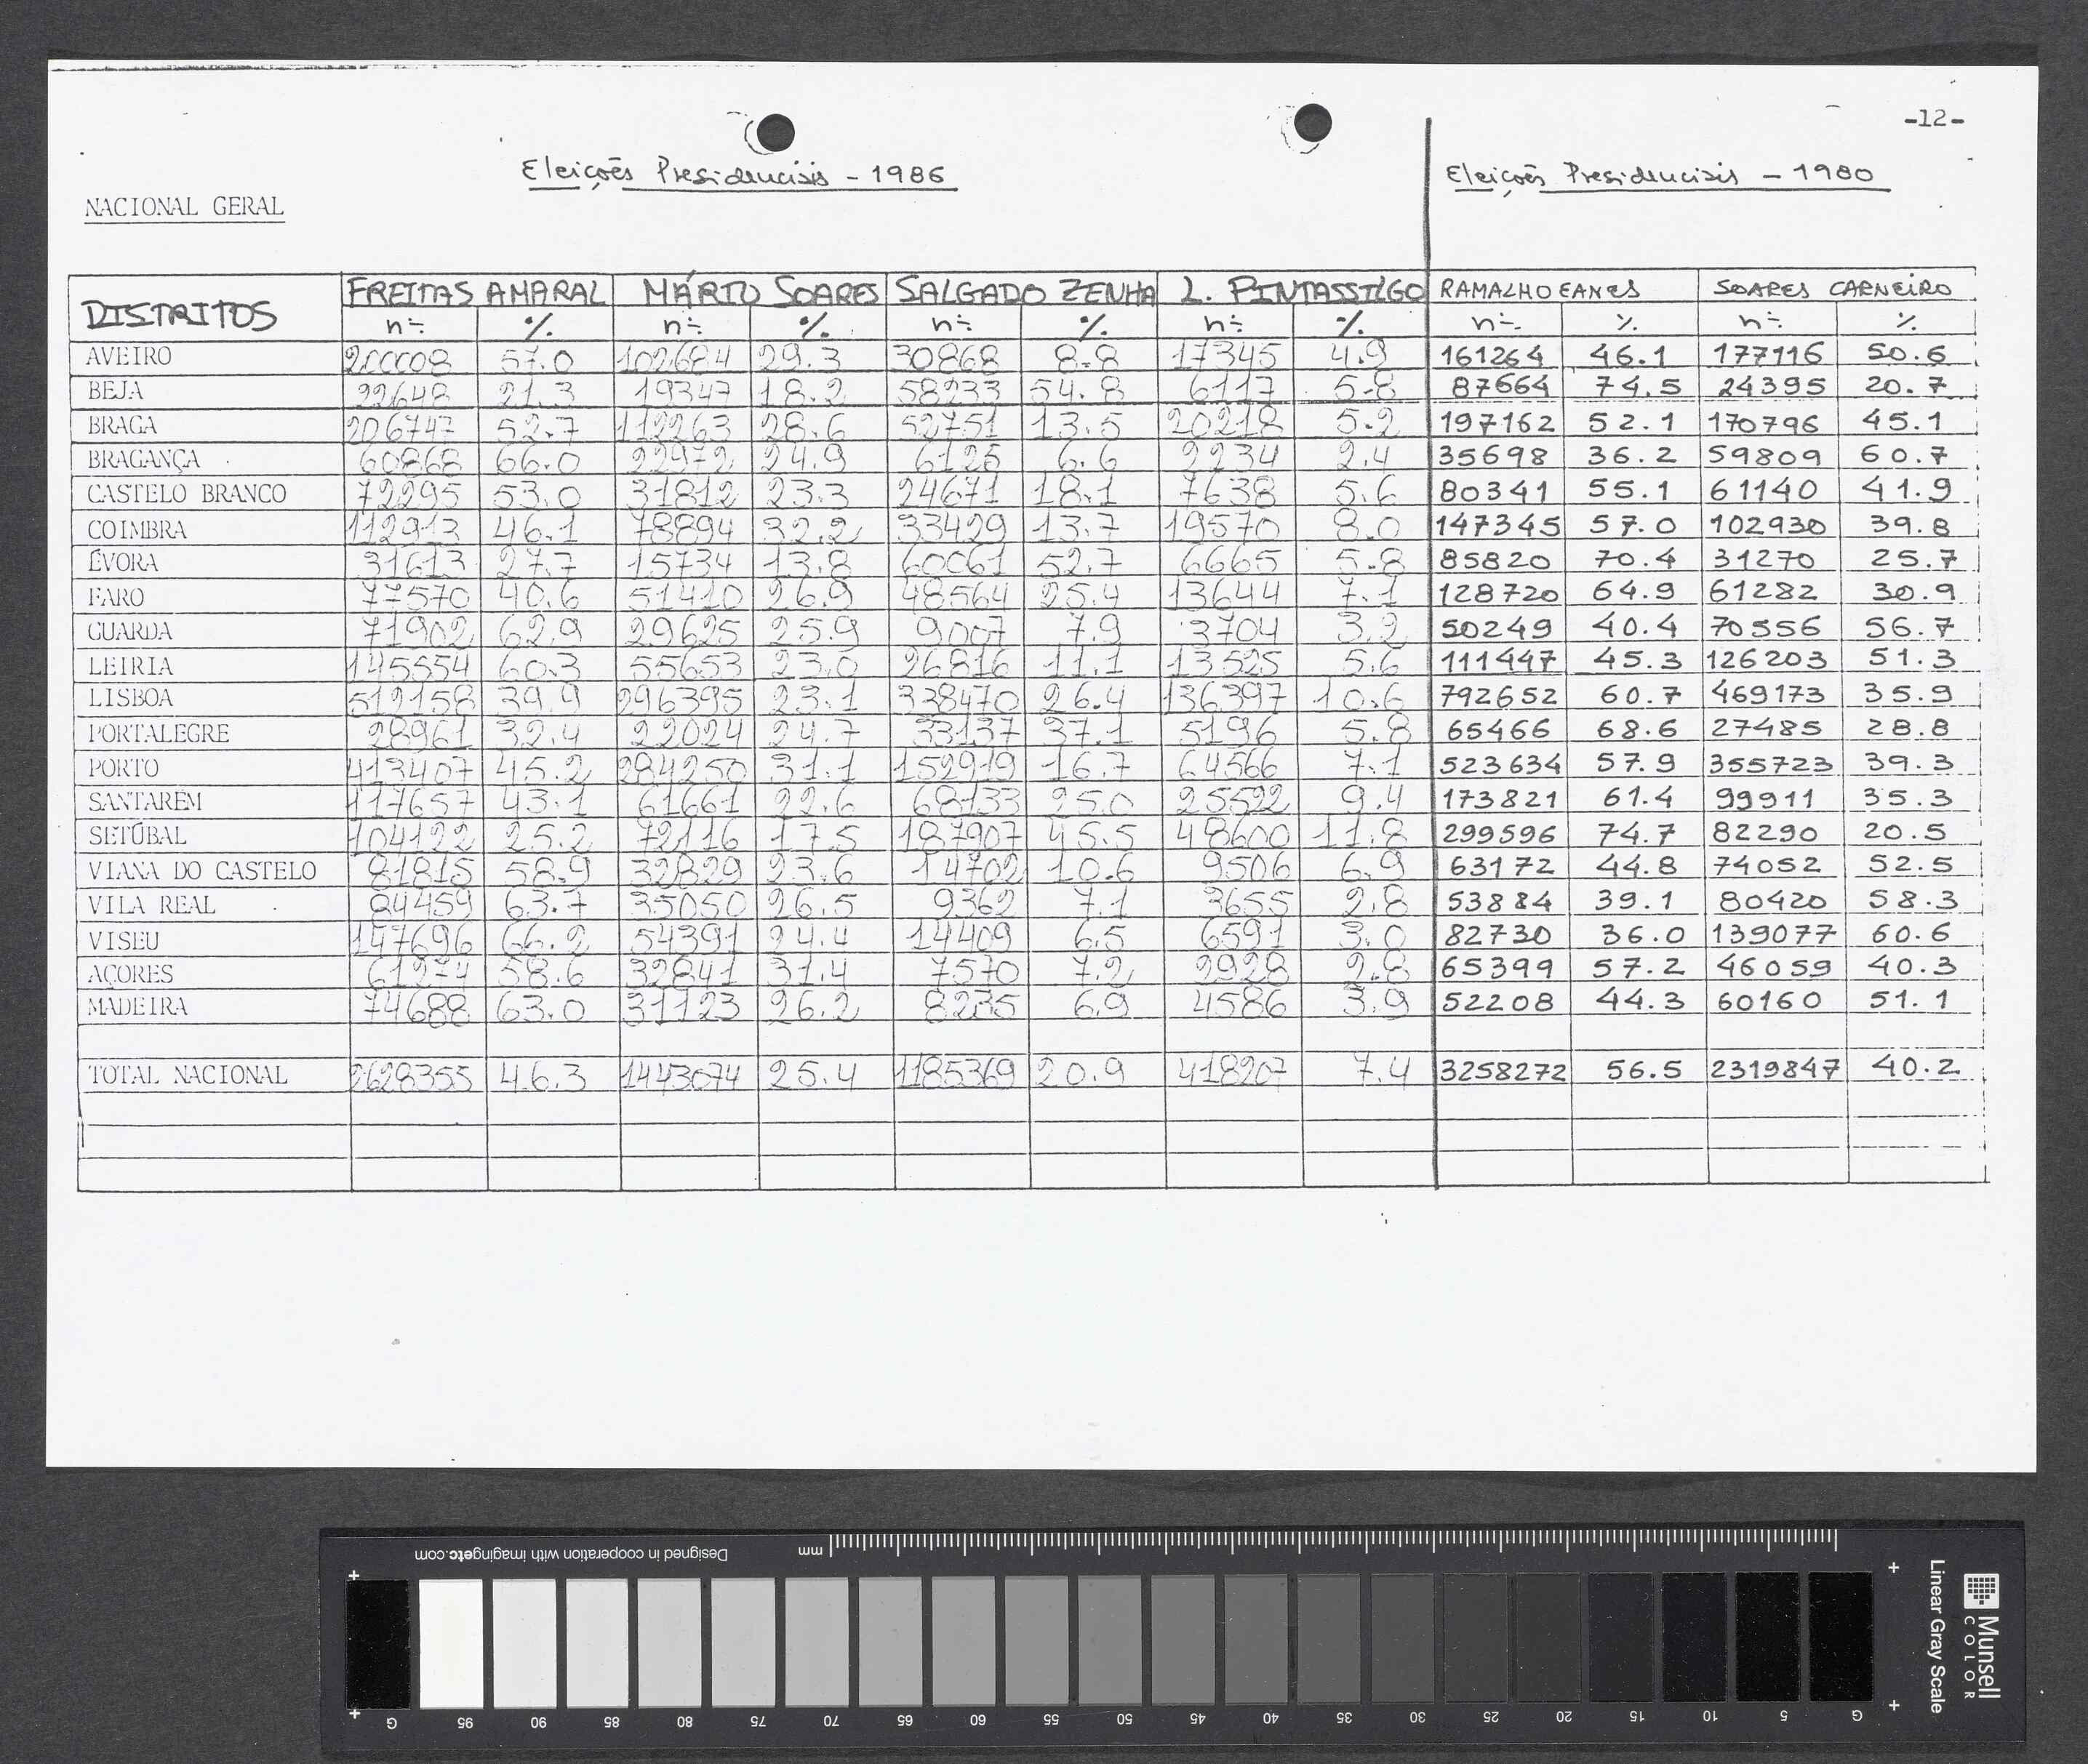 -12-
Eleições Presidenciais - 1986
Eleições Presidenciais - 1980
NACIONAL GERAL
DISTRITOS FREITAS AMARAL MÁRIO SOARES SALGADO ZENHA L. PINTASSILGO RAMALHO EANES SOARES CARNEIRO
nº % nº % nº % nº % nº % nº %
AVEIRO 200008 57.0 102684 29.3 30868 8.8 17345 4.9 161264 46.1 177116 50.6
BEJA 22648 21.3 19347 18.2 58233 54.8 6117 5.8 87664 74.5 24395 20.7
BRAGA 206747 52.7 112263 28.6 52751 13.5 20218 5.2 197162 52.1 170796 45.1
BRAGANÇA 60868 66.0 22972 24.9 6125 6.6 2234 2.4 35698 36.2 59809 60.7
CASTELO BRANCO 72295 53.0 31812 23.3 24671 18.1 7638 5.6 80341 55.1 61140 41.9
COIMBRA 112913 46.1 78894 32.2 33429 13.7 19570 8.0 147345 57.0 102930 39.8
ÉVORA 31613 27.7 15734 13.8 60061 52.7 6665 5.8 85820 70.4 31270 25.7
FARO 77570 40.6 51410 26.9 48564 25.4 13644 7.1 128720 64.9 61282 30.9
GUARDA 71902 62.9 29625 25.9 9007 7.9 3704 3.2 50249 40.4 70556 56.7
LEIRIA 145554 60.3 55653 23.0 26816 11.1 13525 5.6 111447 45.3 126203 51.3
LISBOA 512158 39.9 296395 23.1 338470 26.4 136397 10.6 792652 60.7 469173 35.9
PORTALEGRE 28961 32.4 22024 24.7 33137 37.1 5196 5.8 65466 68.6 27485 28.8
PORTO 413407 45.2 284250 31.1 152919 16.7 64566 7.1 523634 57.9 355723 39.3
SANTARÉM 117657 43.1 61661 22.6 68133 25.0 25522 9.4 173821 61.4 99911 35.3
SETÚBAL 104122 25.2 72116 17.5 187907 45.5 48600 11.8 299596 74.7 82290 20.5
VIANA DO CASTELO 81815 58.9 32829 23.6 14702 10.6 9506 6.9 63172 44.8 74052 52.5
VILA REAL 84459 63.7 35050 26.5 9362 7.1 3655 2.8 53884 39.1 80420 58.3
VISEU 147696 66.2 54391 24.4 14409 6.5 6591 3.0 82730 36.0 139077 60.6
AÇORES 61274 58.6 32841 31.4 7570 7.2 2928 2.8 65399 57.2 46059 40.3
MADEIRA 74688 63.0 31123 26.2 8235 6.9 4586 3.9 52208 44.3 60160 51.1
TOTAL NACIONAL 2628355 46.3 1443074 25.4 1185369 20.9 418207 7.4 3258272 56.5 2319847 40.2
Designed in cooperation with imagingetc.com
mm
G 95 90 85 80 75 70 65 60 55 50 45 40 35 30 25 20 15 10 5 G
Linear Gray Scale
Munsell
COLOR